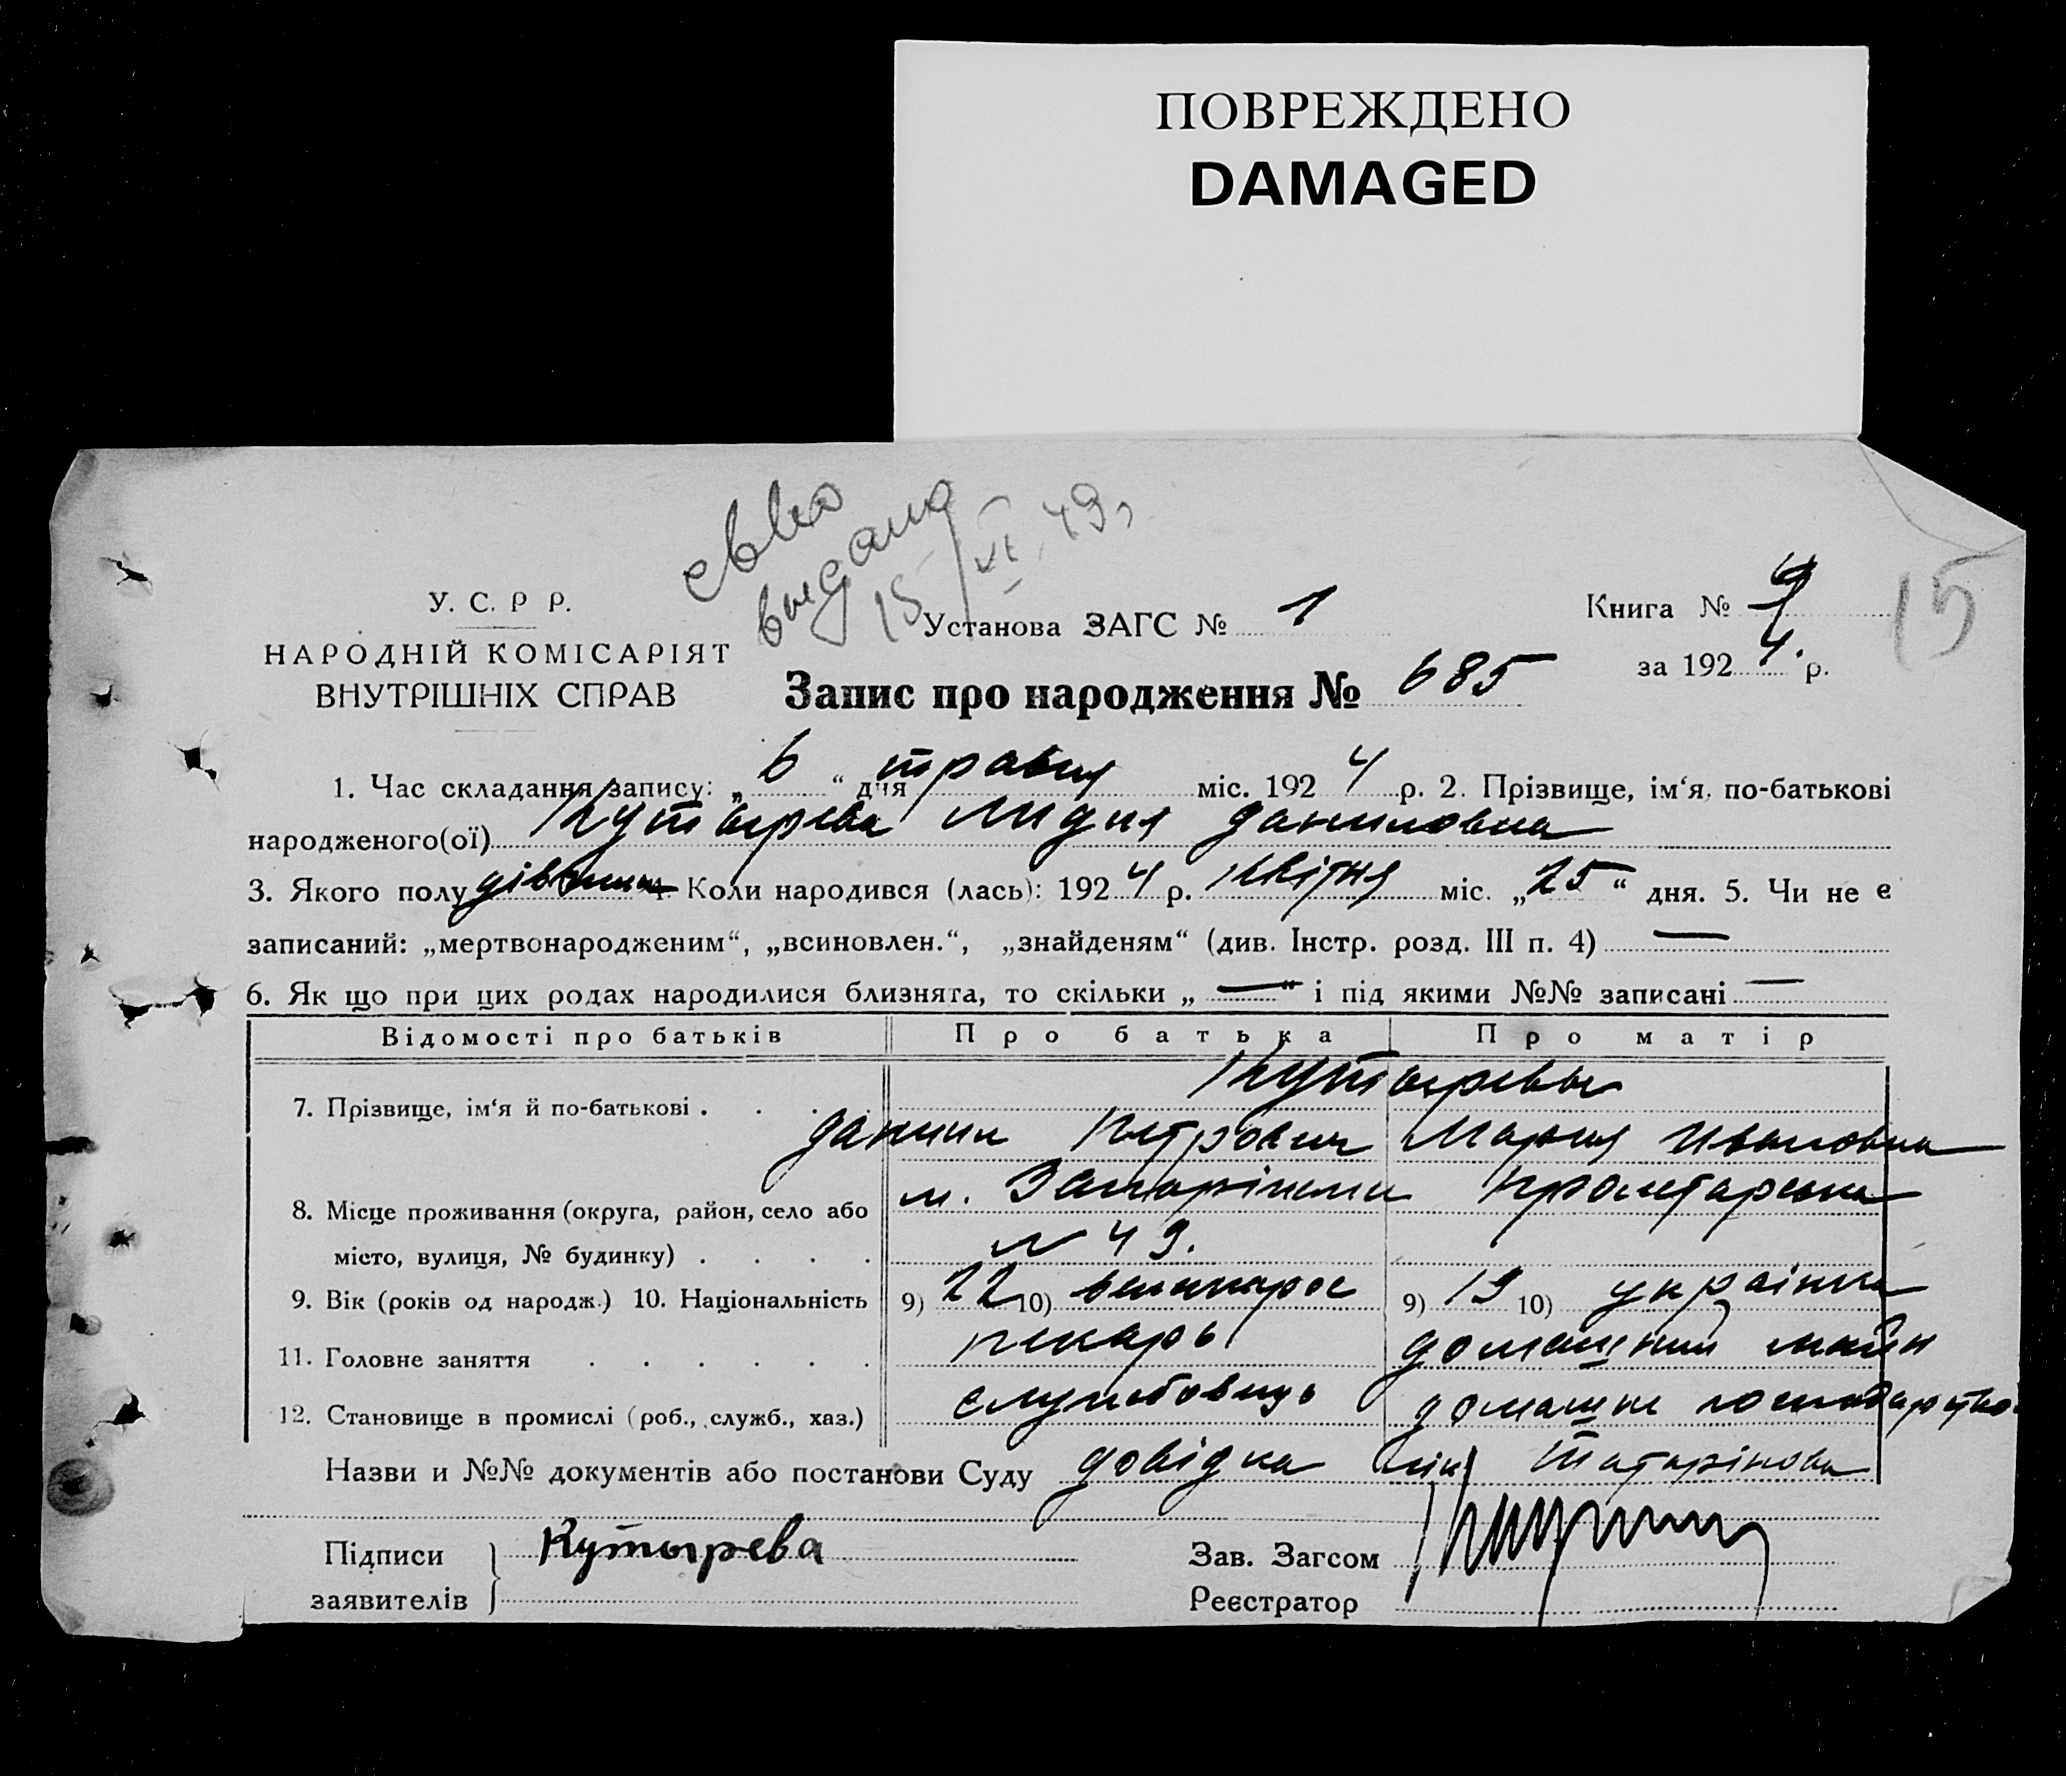 ПОВРЕЖДЕНО
DAMAGED
св-во
выдано
15/VI 49 г
15
У. С. Р Р.
НАРОДНІЙ КОМІСАРІЯТ
ВНУТРІШНІХ СПРАВ
Установа ЗАГС № 1
Книга №
за 1924. р.
Запис про народження № 685
1. Час складання запису: „6“ дня травня міс. 1924 р. 2. Прізвище, ім‘я, по-батькові
народженого(ої) Кутырева Лидия Даниловна
3. Якого полу дівчина 4. Коли народився (лась): 1924 р. квітня міс. „25“ дня. 5. Чи не є
записаний: „мертвонародженим“, „всиновлен.“, „знайденям“ (див. Інстр. розд. III п. 4) —
6. Як що при цих родах народилися близнята, то скільки „—“ і під якими №№ записані —
Відомості про батьків Про батька Про матір
Кутыревы
7. Прізвище, ім‘я й по-батькові . . . .
Даниил Петрович Мария Ивановна
8. Місце проживання (округа, район, село або м. Запоріжжи Пролетарська
місто, вулиця, № будинку) . . . . № 49.
9. Вік (років од народж.) 10. Національність 9) 22 10) великорос 9) 19 10) українка
11. Головне заняття . . . . . . пекарь
12. Становище в промислі (роб., служб., хаз.) службовець домашнє господарство
Назви и №№ документів або постанови Суду довідка лік Татарінова
Підписи Кутырева Зав. Загсом
заявителів Реєстратор